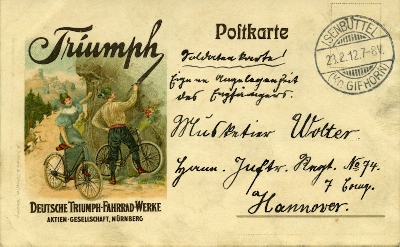 Triumph
DEUTSCHE TRIUMPH-FAHRRAD-WERKE
AKTIEN-GESELLSCHAFT, NÜRNBERG
Postkarte
Soldatenkarte!
Eigene Angelegenheit
des Empfängers.
Musketier Wolter.
Hann. Inftr. Regt. No 74.
7 Comp.
Hannover.
ISENBÜTTEL
23.2.12.7-8V.
(Kr. GIFHORN)